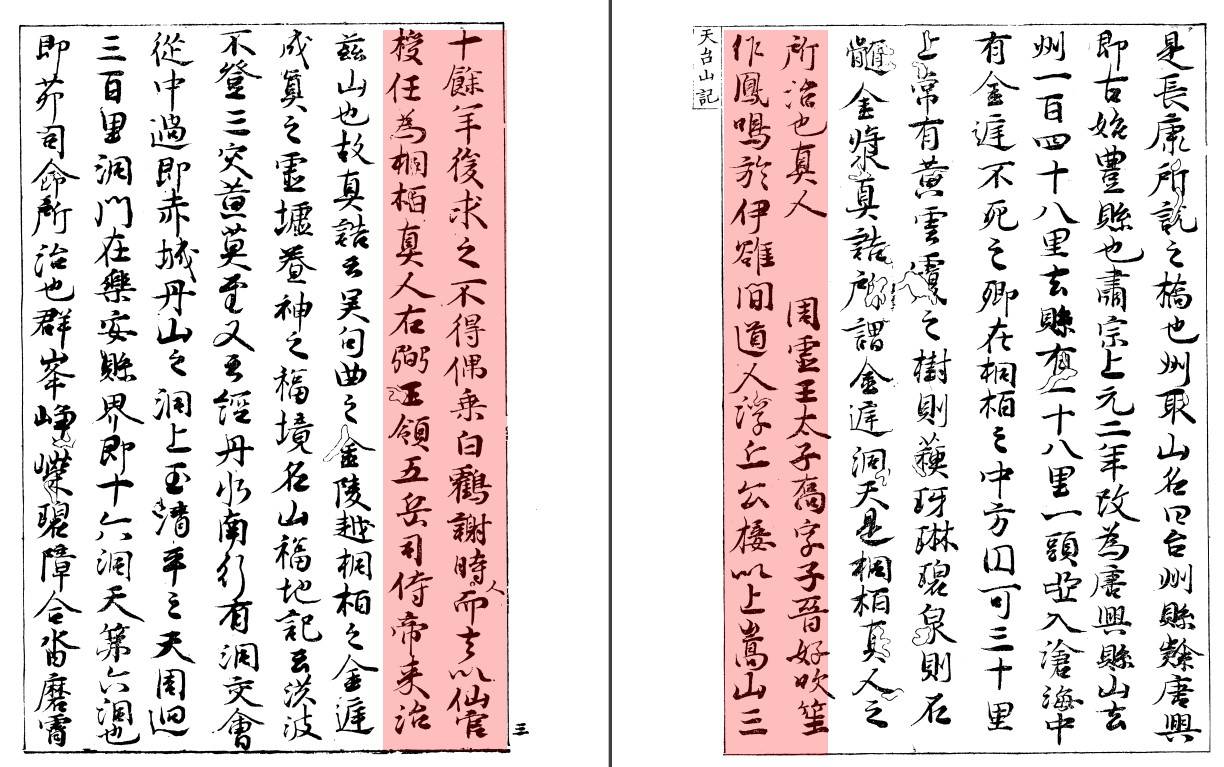 是長康所説之橋也州取山名曰台州縣隸唐興
即古始豐縣也肅宗上元二年改為唐興縣山去
州一百四十八里去縣有一十八里一頭亞入滄海中
有金庭不死之鄉在桐栢之中方圓可三十里
上常有黄雲覆之樹則蘇玡琳碧泉則石
髓金漿真誥所謂金庭洞天是桐栢真人之
所治也真人 周靈王太子喬字子晉好吹笙
作鳳鳴於伊雒間道人浮丘公接以上嵩山三
天台山記
十餘年後求之不得偶乘白鶴謝時人而去以仙官
授任為桐栢真人右弼王領五岳司侍帝來治
兹山也故真誥云吴句曲之金陵越桐栢之金庭
成真之靈墟養神之福境名山福地記云洪波
不登三灾莫至又云經丹水南行有洞交會
從中過即赤城丹山之洞上玉清平之天周迴
三百里洞門在樂安縣界即十六洞天第六洞也
即茅司命所治也群峯崢嶸碧障合沓磨霄
三